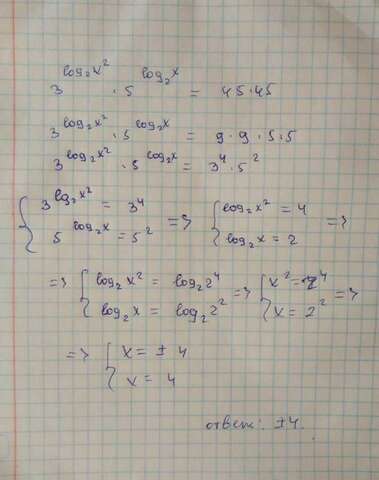 3^{log₂x²} · 5^{log₂x} = 45·45
3^{log₂x²} · 5^{log₂x} = 9·9·5·5
3^{log₂x²} · 5^{log₂x} = 3⁴·5²
{ 3^{log₂x²} = 3⁴ => { log₂x² = 4 =>
{ 5^{log₂x} = 5² { log₂x = 2
=> { log₂x² = log₂2⁴ => { x² = 2⁴ =>
{ log₂x = log₂2² { x = 2²
=> { x = ± 4
{ x = 4
ответ: ±4.